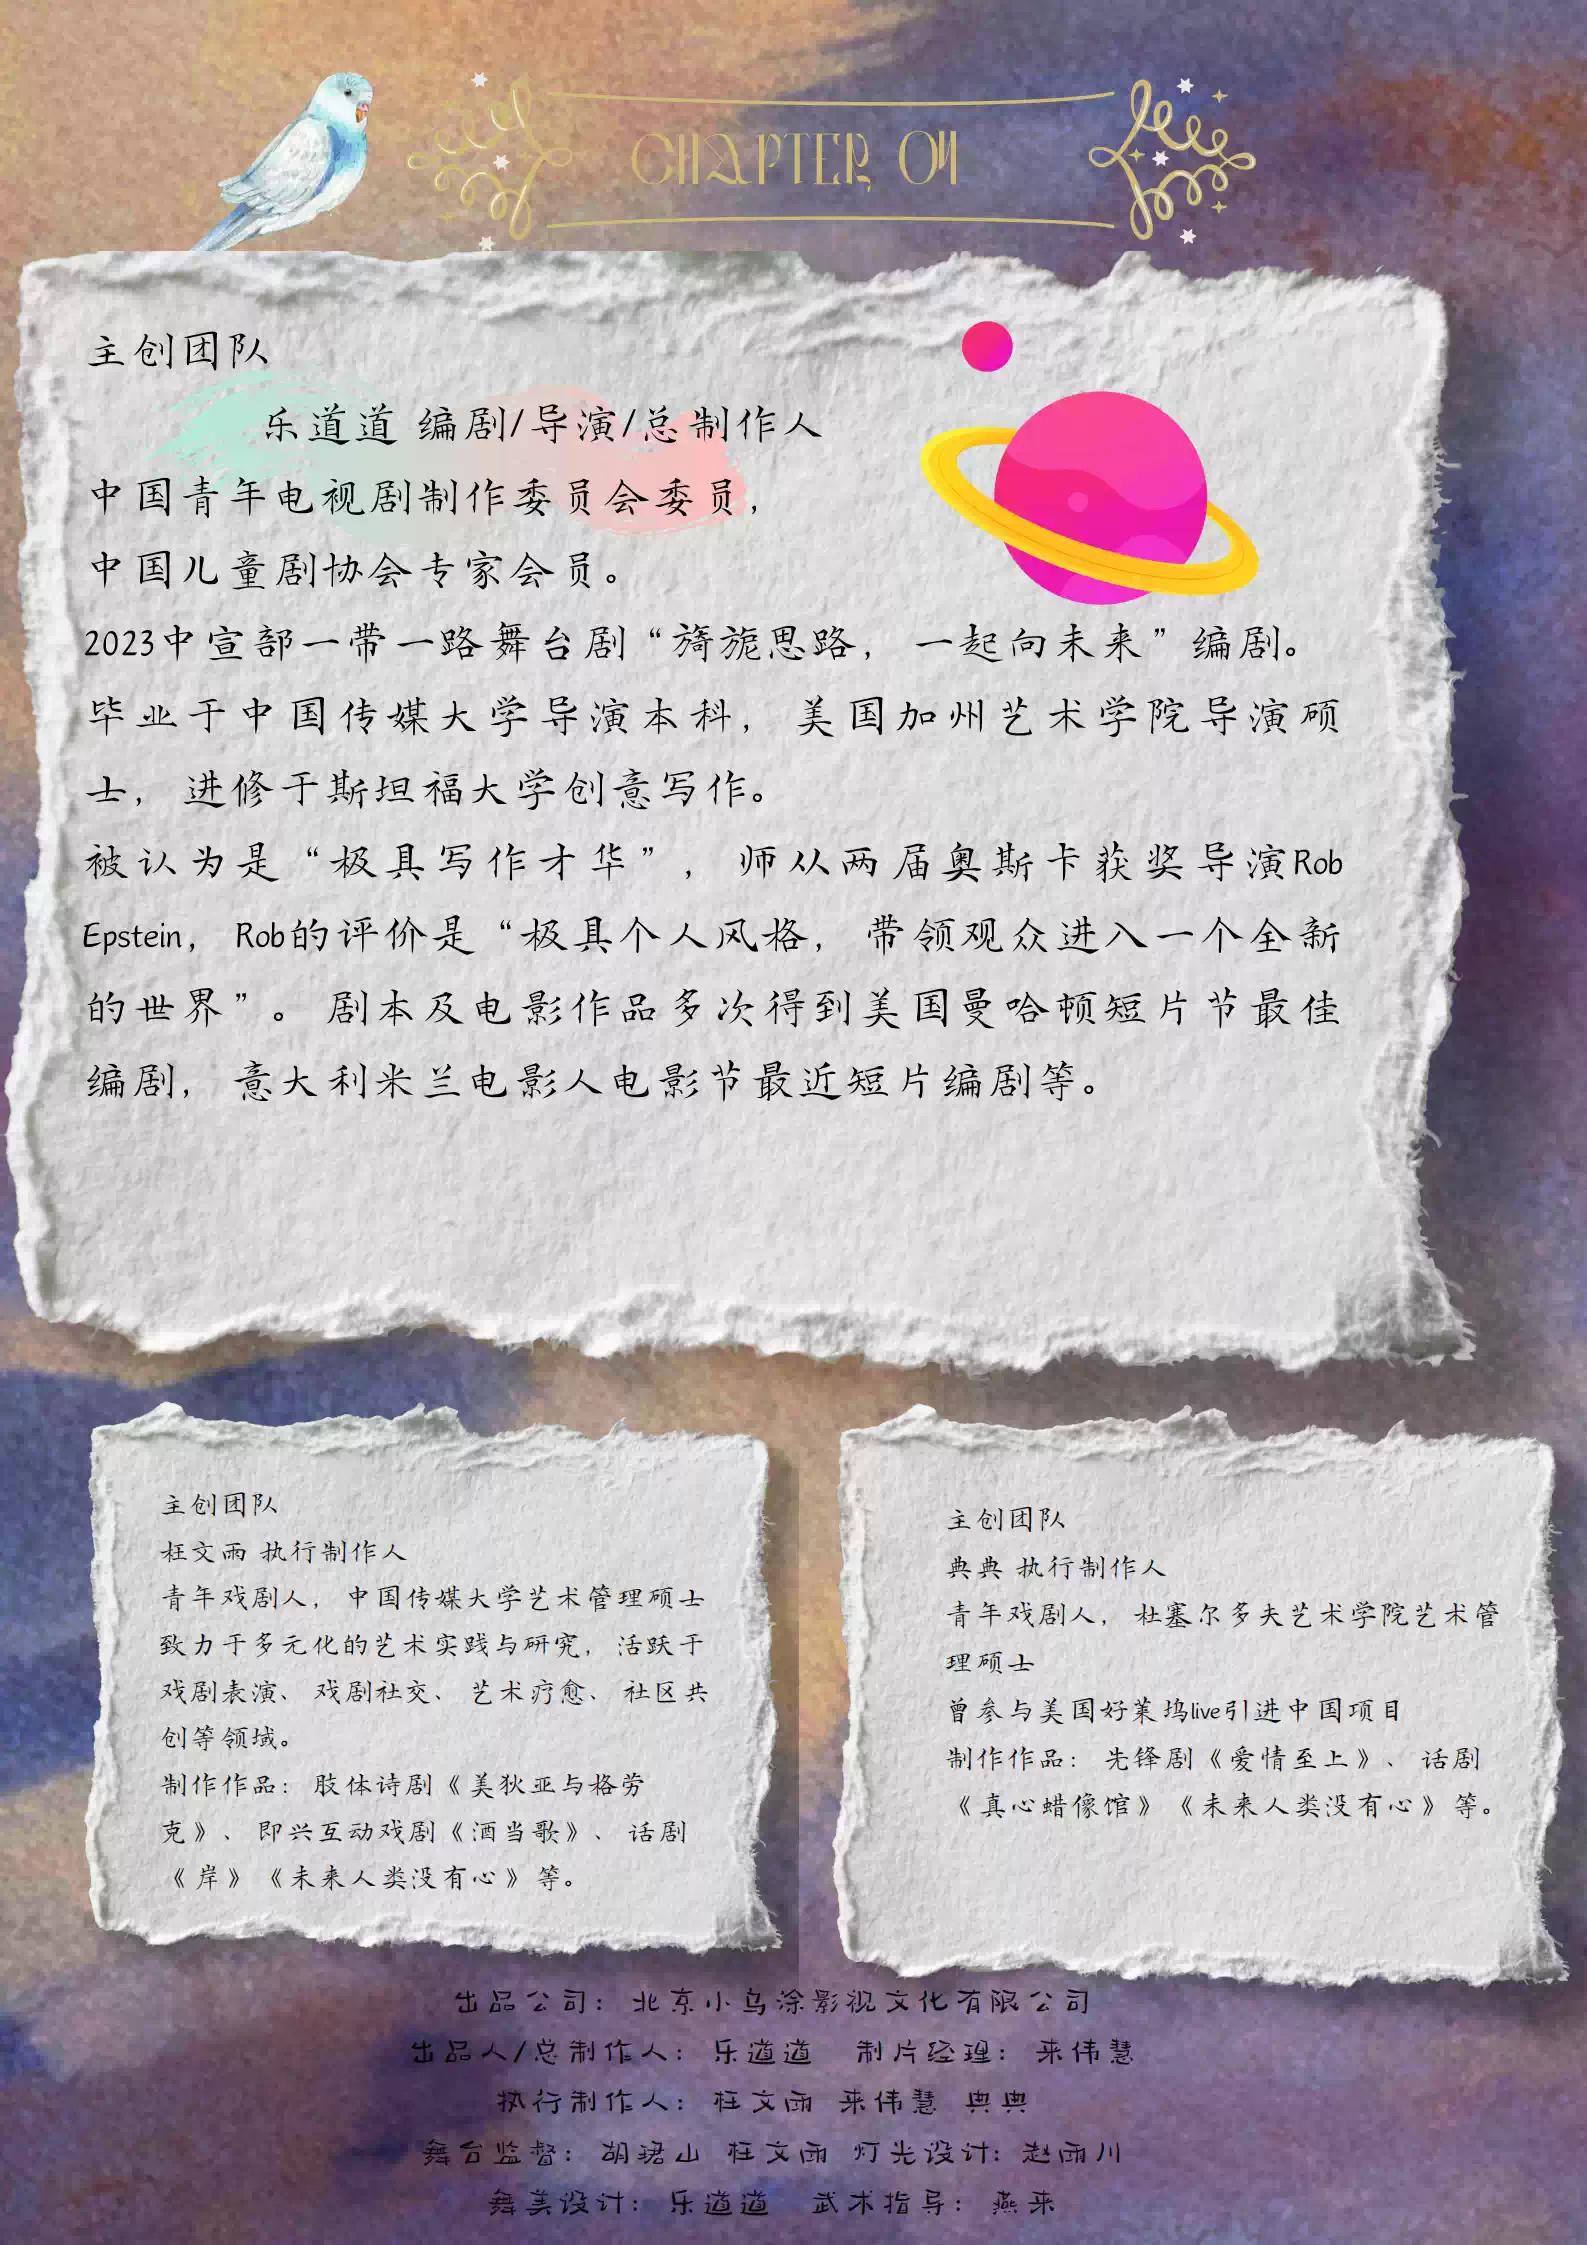 CHAPTER 04
主创团队
乐道道 编剧/导演/总制作人
中国青年电视剧制作委员会委员，
中国儿童剧协会专家会员。
2023中宣部一带一路舞台剧“旖旎思路，一起向未来”编剧。
毕业于中国传媒大学导演本科，美国加州艺术学院导演硕
士，进修于斯坦福大学创意写作。
被认为是“极具写作才华”，师从两届奥斯卡获奖导演Rob
Epstein，Rob的评价是“极具个人风格，带领观众进入一个全新
的世界”。剧本及电影作品多次得到美国曼哈顿短片节最佳
编剧，意大利米兰电影人电影节最近短片编剧等。
主创团队
枉文雨 执行制作人
青年戏剧人，中国传媒大学艺术管理硕士
致力于多元化的艺术实践与研究，活跃于
戏剧表演、戏剧社交、艺术疗愈、社区共
创等领域。
制作作品：肢体诗剧《美狄亚与格劳
克》、即兴互动戏剧《酒当歌》、话剧
《岸》《未来人类没有心》等。
主创团队
典典 执行制作人
青年戏剧人，杜塞尔多夫艺术学院艺术管
理硕士
曾参与美国好莱坞live引进中国项目
制作作品：先锋剧《爱情至上》、话剧
《真心蜡像馆》《未来人类没有心》等。
出品公司：北京小乌涂影视文化有限公司
出品人/总制作人：乐道道 制片经理：来伟慧
执行制作人：枉文雨 来伟慧 典典
舞台监督：胡珺山 枉文雨 灯光设计：赵雨川
舞美设计：乐道道 武术指导：燕来